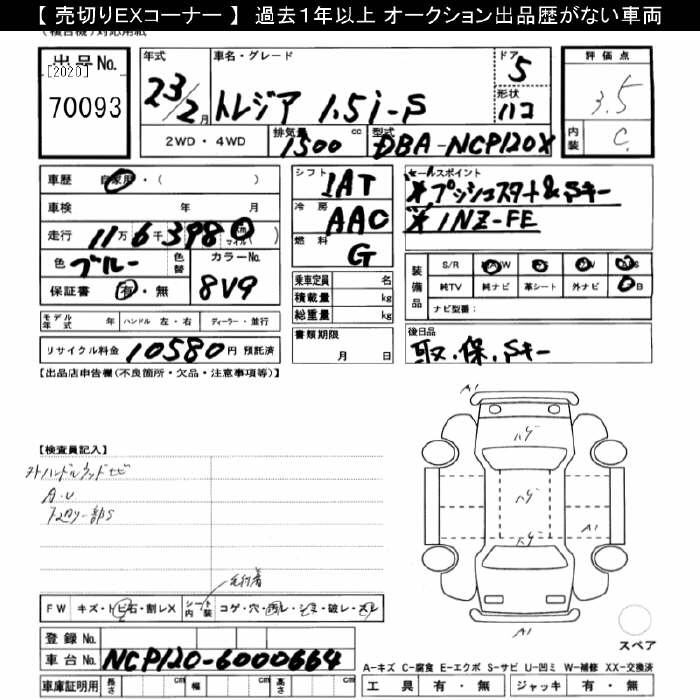 【 売切りEXコーナー 】 過去1年以上 オークション出品歴がない車両
出品No.
[2020]
70093
年式
23/2月
車名・グレード
トレジア 1.5i-S
ドア
5
形状
ハコ
評価点
3.5
内装
C
2WD・4WD
排気量
1500
cc
型式
DBA-NCP120X
車歴 自家用・( )
車検 年 月
走行 11万6千398 0 km マイル ( )
色 ブルー
色替
カラーNo.
8V9
保証書 有・無
シフト
IAT
冷房
AAC
燃料
G
乗車定員 名
積載量 kg
総重量 kg
セールスポイント
*プッシュスタート&Sキー
*1NZ-FE
装備品
S/R
純TV 純ナビ 革シート 外ナビ
ナビ型番:
モデル年式 年 ハンドル 左・右 ディーラー・並行
リサイクル料金 10580円 預託済
書類期限
月 日
後日品
取.保.Sキー
【出品店申告欄(不良箇所・欠品・注意事項等)】
【検査員記入】
A.U
FW キズ・トビ石・割レX
シート内装
コゲ・穴・汚レ・シミ・破レ・スレ
登録 No.
車台 No. NCP120-6000664
車庫証明用 長さ cm 幅 cm 高さ cm
A1
ハゲ
ハゲ
ハゲ
A1
A1
スペア
A-キズ C-腐食 E-エクボ S-サビ U-凹ミ W-補修 XX-交換済
工具 有・無 ジャッキ 有・無